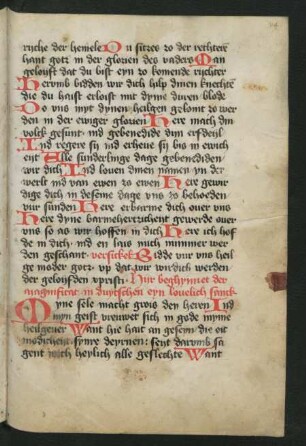 rijche der hemele Du sitzes zo der rechterer
hant gotz in der glorien des vaders Man
geloufft dat du bist eyn zo komende richter
Herumb bidden wir dich hilp dinen knechten
die du haist erloist mit dyme duren blode
Do uns myt dynen heilgen geloint zo wer
den in der ewiger glorien Here mach din
volck gesunt ind gebenedide din erfdeil
Ind regere sij ind erheue sij bis in ewich
eit Elle sunderlinge dage gebenediden
wir dich Ind louen dinen namen yn der
werlt ind van ewen zo ewen Here gewir
dige dich in desme dage vns zo behoeden
vur sunden Here erbarme dich ouer vns
Here dyne barmehertzicheit gewerde ouer
vns so as wir hoffen in dich Here ich hof
fe in dich ind en laus mich nummer wer
den geschant versickel Bidde vur vns heil
ge moder gotz vp dat wir wirdich werden
der geloiffden cristi Hur beghynnet der
magnificat in duytschen eyn louelich sanck
Myne sele macht grois den heren Ind
myn geist vreuwet sich in gode myme
heilgeuer Want hie hait an gesein die oit
modicheit synre deyrnen : seyt darumb sa
gent mich heylich alle geslechte Want